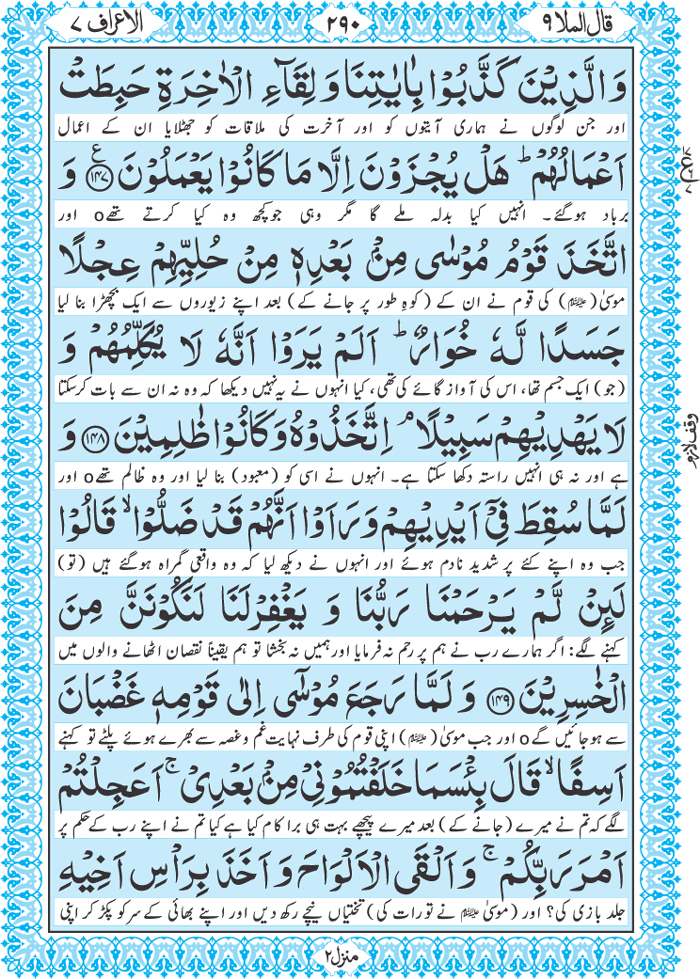 قال الملا ٩
٢٩٠
الاعراف ٧
وَالَّذِیْنَ كَذَّبُوْا بِاٰیٰتِنَا وَ لِقَآءِ الْاٰخِرَةِ حَبِطَتْ
اور جن لوگوں نے ہماری آیتوں کو اور آخرت کی ملاقات کو جھٹلایا ان کے اعمال
اَعْمَالُهُمْ ؕ هَلْ یُجْزَوْنَ اِلَّا مَا كَانُوْا یَعْمَلُوْنَ ﴿۱۴۷﴾ ع وَ
برباد ہوگئے۔ انہیں کیا بدلہ ملے گا مگر وہی جوکچھ وہ کیا کرتے تھے o اور
اتَّخَذَ قَوْمُ مُوْسٰی مِنْۢ بَعْدِهٖ مِنْ حُلِیِّهِمْ عِجْلًا
موسیٰ (علیہ السلام) کی قوم نے ان کے (کوہِ طور پر جانے کے) بعد اپنے زیوروں سے ایک بچھڑا بنا لیا
جَسَدًا لَّهٗ خُوَارٌ ؕ اَلَمْ یَرَوْا اَنَّهٗ لَا یُكَلِّمُهُمْ وَ
(جو) ایک جسم تھا، اس کی آواز گائے کی تھی، کیا انہوں نے یہ نہیں دیکھا کہ وہ نہ ان سے بات کرسکتا
لَا یَهْدِیْهِمْ سَبِیْلًا ۘ اِتَّخَذُوْهُ وَ كَانُوْا ظٰلِمِیْنَ ﴿۱۴۸﴾ وَ
ہے اور نہ ہی انہیں راستہ دکھا سکتا ہے۔ انہوں نے اسی کو (معبود) بنا لیا اور وہ ظالم تھے o اور
لَمَّا سُقِطَ فِیْۤ اَیْدِیْهِمْ وَ رَاَوْا اَنَّهُمْ قَدْ ضَلُّوْا ۙ قَالُوْا
جب وہ اپنے کئے پر شدید نادم ہوئے اور انہوں نے دیکھ لیا کہ وہ واقعی گمراہ ہوگئے ہیں (تو)
لَئِنْ لَّمْ یَرْحَمْنَا رَبُّنَا وَ یَغْفِرْ لَنَا لَنَكُوْنَنَّ مِنَ
کہنے لگے: اگر ہمارے رب نے ہم پر رحم نہ فرمایا اور ہمیں نہ بخشا تو ہم یقیناً نقصان اٹھانے والوں میں
الْخٰسِرِیْنَ ﴿۱۴۹﴾ وَ لَمَّا رَجَعَ مُوْسٰۤی اِلٰی قَوْمِهٖ غَضْبَانَ
سے ہوجائیں گے o اور جب موسیٰ (علیہ السلام) اپنی قوم کی طرف نہایت غم و غصہ سے بھرے ہوئے پلٹے تو کہنے
اَسِفًا ۙ قَالَ بِئْسَمَا خَلَفْتُمُوْنِیْ مِنْۢ بَعْدِیْ ۚ اَعَجِلْتُمْ
لگے کہ تم نے میرے (جانے کے) بعد میرے پیچھے بہت ہی برا کام کیا ہے کیا تم نے اپنے رب کے حکم پر
اَمْرَ رَبِّكُمْ ۚ وَ اَلْقَی الْاَلْوَاحَ وَ اَخَذَ بِرَاْسِ اَخِیْهِ
جلد بازی کی؟ اور (موسیٰ علیہ السلام نے تورات کی) تختیاں نیچے رکھ دیں اور اپنے بھائی کے سر کو پکڑ کر اپنی
منزل ۲